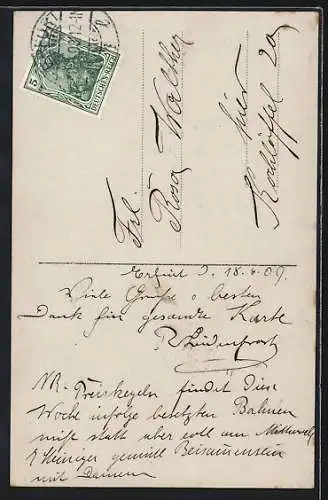 5
DEUTSCHES REICH
Frl.
Rosa Walther
hier
Kochlöffel 20
Erfurt d. 18.6.09.
Viele Grüße u besten
Dank für gesandte Karte
R Leidenfrost
NB. Preiskegeln findet diese
Woche infolge besetzten Bahnen
nicht statt aber voll am
gemütl Beisammensein
mit Damen